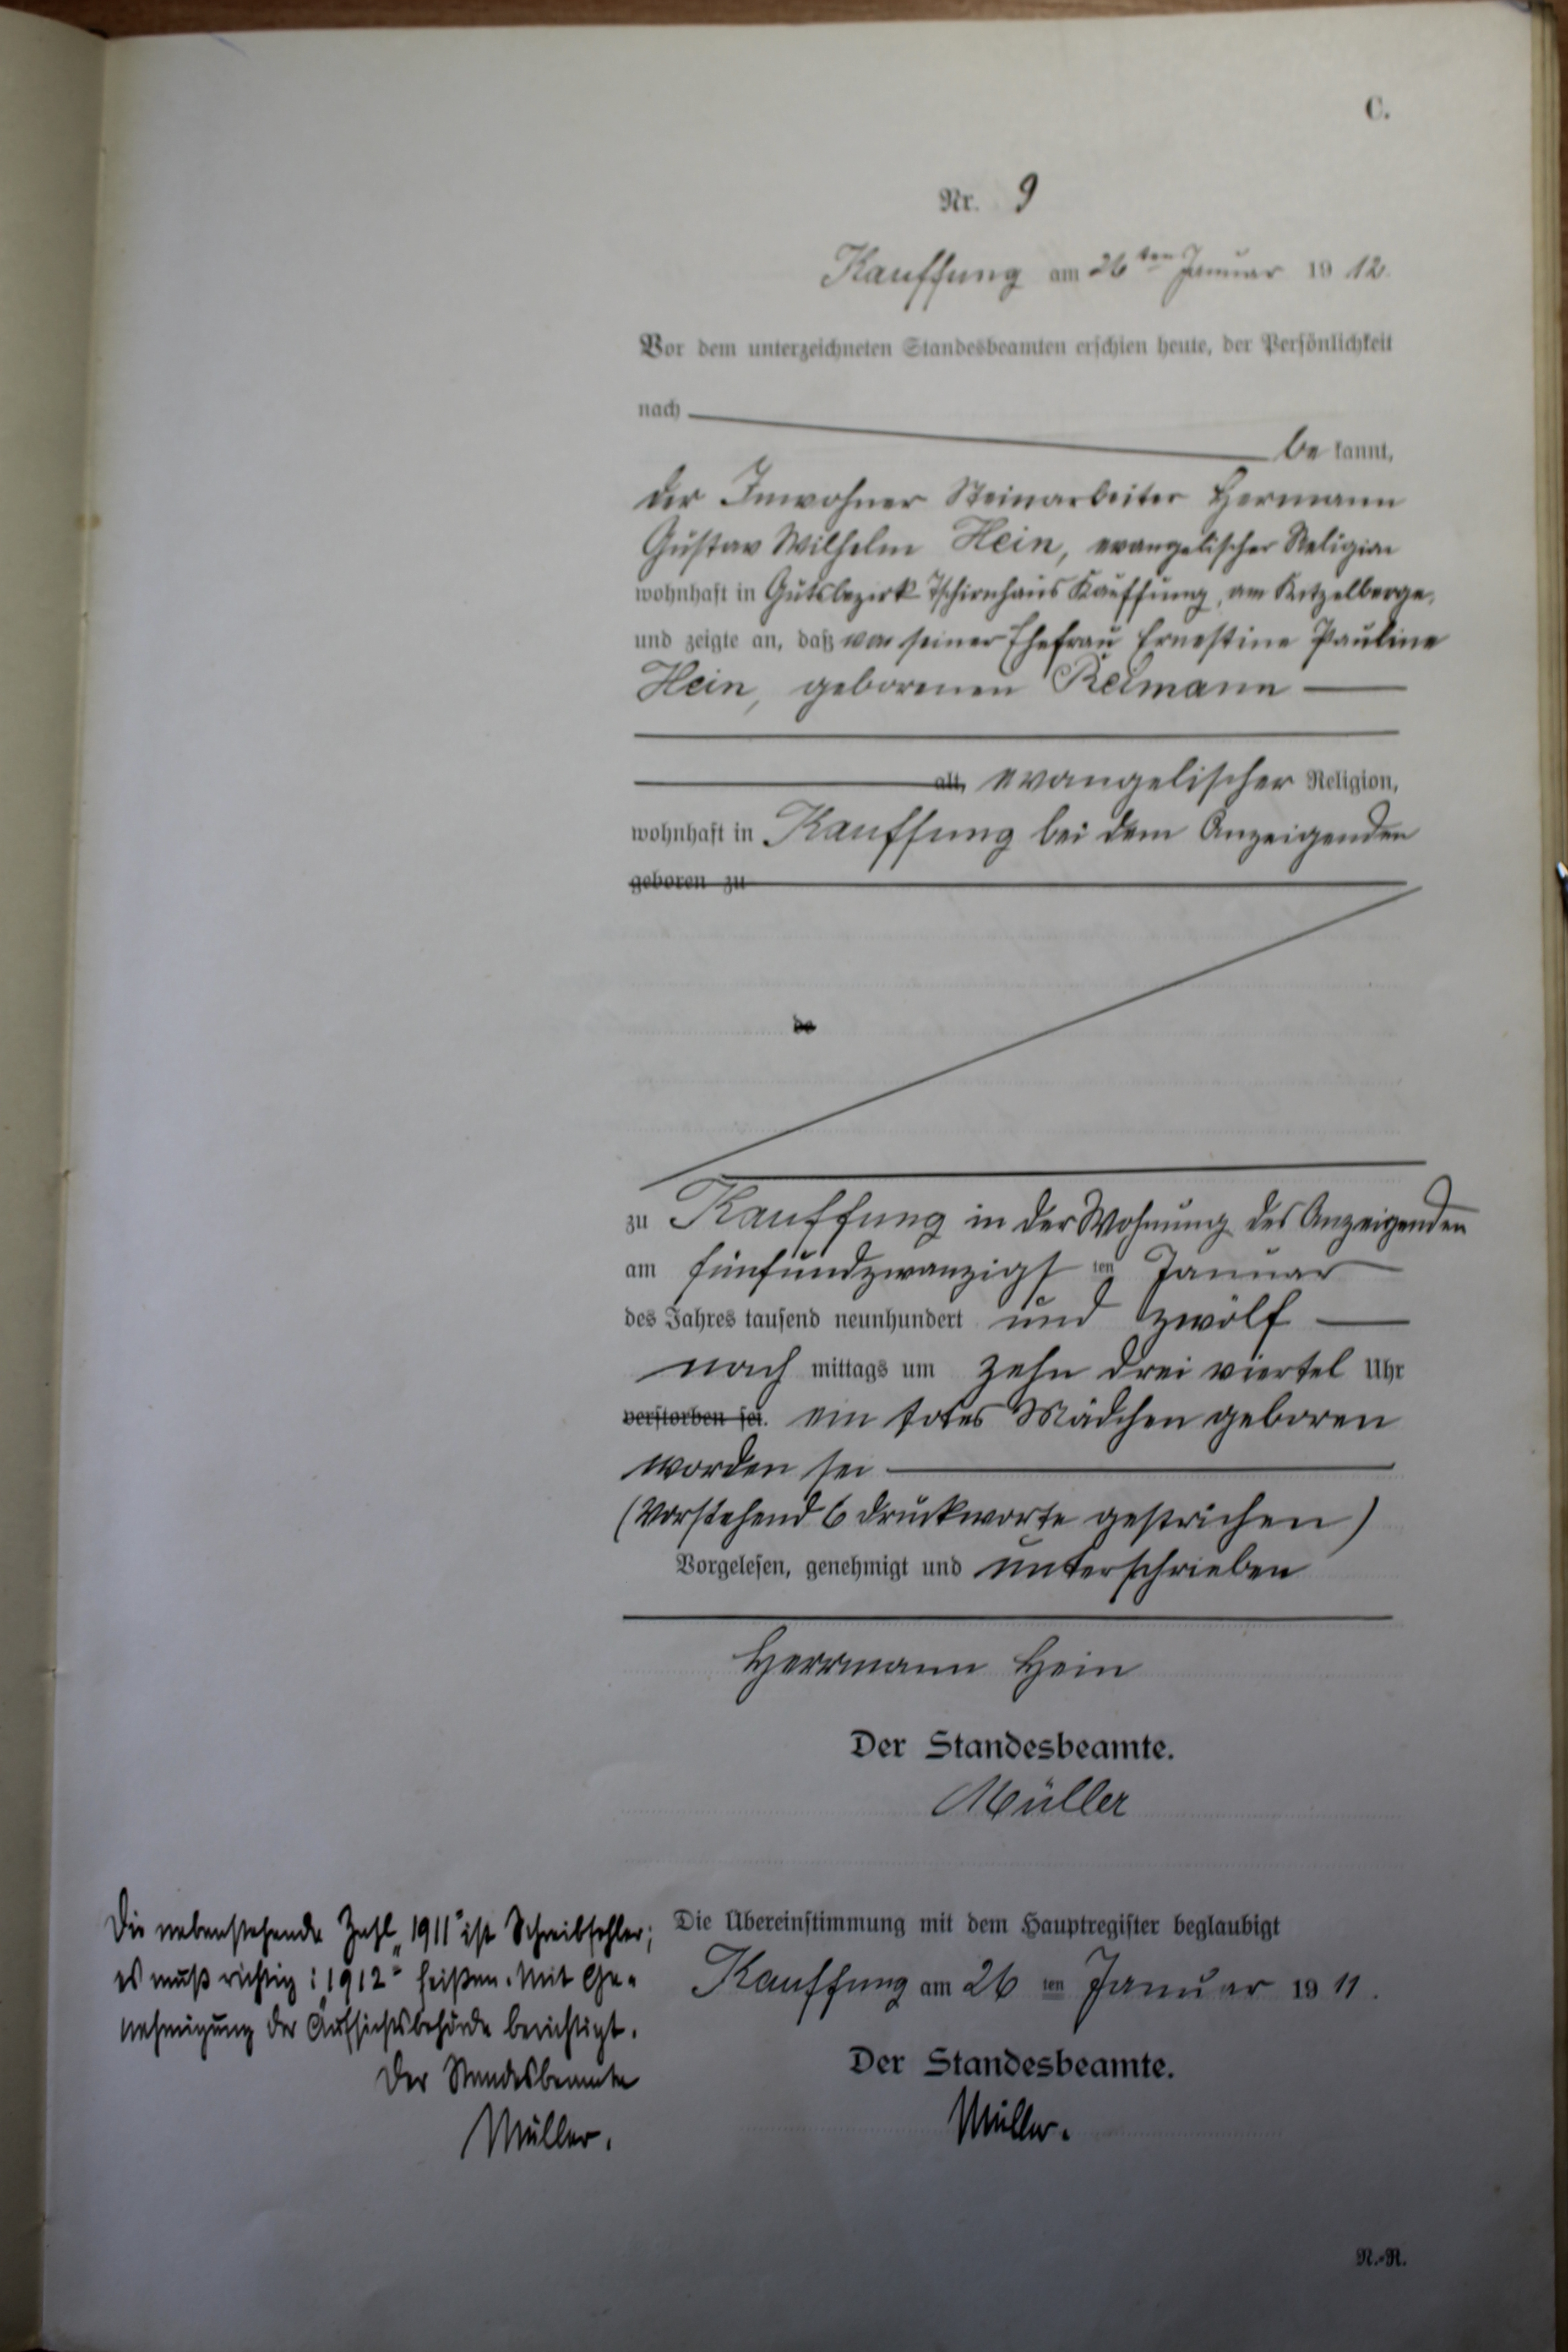 C.
Nr. 9
Kauffung am 26ten Januar 1912.
Vor dem unterzeichneten Standesbeamten erschien heute, der Persönlichkeit
nach
be kannt,
der Inwohner Steinarbeiter Hermann
Gustav Wilhelm Hein, evangelischer Religion
wohnhaft in Gutsbezirk Tschirnhaus Kauffung, am Kitzelberge,
und zeigte an, daß von seiner Ehefrau Ernestine Pauline
Hein, geborenen Reimann
alt, evangelischer Religion,
wohnhaft in Kauffung bei dem Anzeigenden
geboren zu
de
zu Kauffung in der Wohnung des Anzeigenden
am fünfundzwanzigsten Januar
des Jahres tausend neunhundert und zwölf
nach mittags um zehn drei viertel Uhr
verstorben sei. ein totes Mädchen geboren
worden sei
(Vorstehend 6 Druckworte gestrichen)
Vorgelesen, genehmigt und unterschrieben
Herrmann Hein
Der Standesbeamte.
Müller
Die Übereinstimmung mit dem Hauptregister beglaubigt
Kauffung am 26 ten Januar 1911.
Der Standesbeamte.
Müller.
Die nebenstehende Zahl „1911" ist Schreibfehler;
es muß richtig: „1912" heißen. Mit Ge-
nehmigung der Aufsichtsbehörde berichtigt.
Der Standesbeamte
Müller.
N.-R.